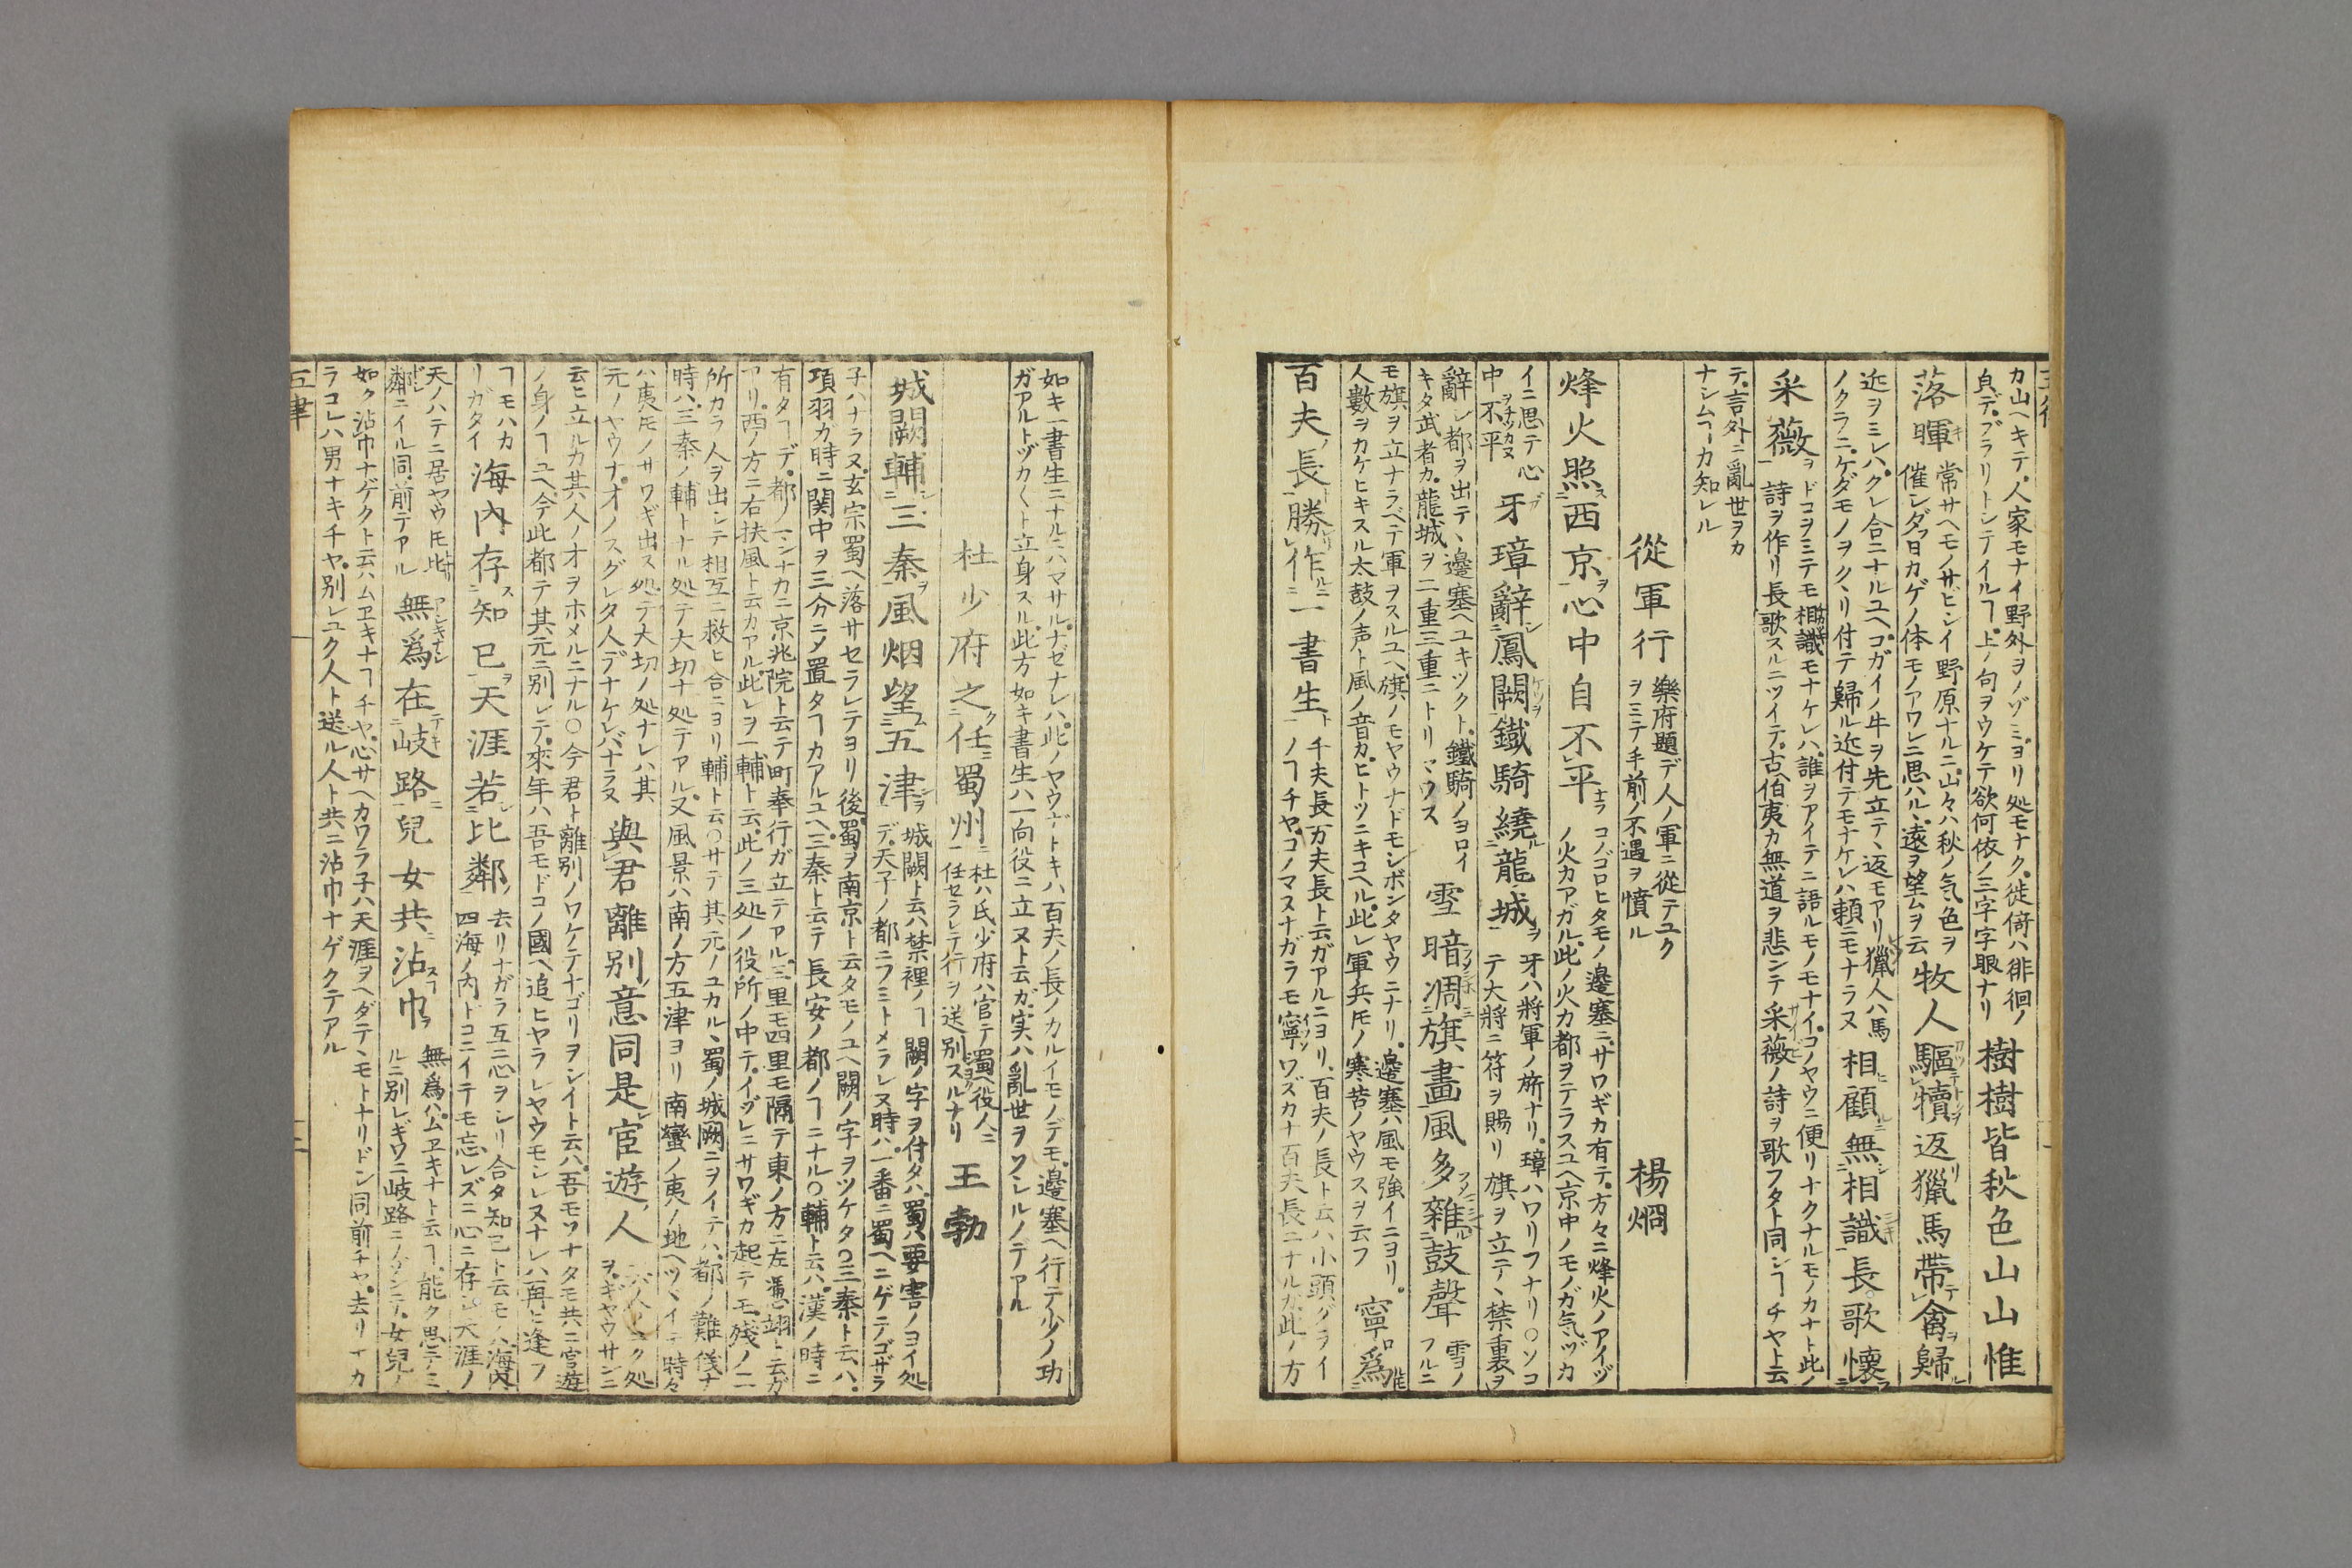 カ山ヘキテ人家モナイ野外ヲノゾミヨリ処モナク徙倚ハ徘徊ノ
貞デブラリトシテイルヿ上ノ句ヲウケテ欲何依ノ三字字眼ナリ
樹樹皆秋色山山惟
落暉
常サヘモノサビシイ野原ナルニ山々ハ秋ノ気色ヲ
催シダ日カゲノ体モノアワレニ思ハル遠ヲ望ムヲ云
牧人驅犢返獵馬帶禽歸
近ヲミレハクレ合ニナルユヘコガイノ牛ヲ先立テヽ返モアリ獵人ハ馬
ノクラニケダモノヲクヽリ付テ歸ル近付テモナケレハ頼ニモナラヌ
相顧無相識長歌懷
采薇
ドコヲミテモ相識モナケレハ誰ヲアイテニ語ルモノモナイコノヤウニ便リナクナルモノカナト此ノ
詩ヲ作リ長歌スルニツイテ古伯夷カ無道ヲ悲シテ采薇ノ詩ヲ歌フタト同シヿチヤト云
テ言外ニ亂世ヲカ
ナシムヿカ知レル
從軍行
樂府題デ人ノ軍ニ從テユク
ヲミテ手前ノ不遇ヲ憤ル
楊烱
烽火照西京心中自不平
コノゴロヒタモノ邊塞ニサワギカ有テ方々ニ烽火ノアイヅ
ノ火カアガル此ノ火カ都ヲテラスユヘ京中ノモノガ気ヅカ
イニ思テ心
中不平
牙璋辭鳳闕鐵騎繞龍城
牙ハ將軍ノ旂ナリ璋ハワリフナリ○ソコ
テ大將ニ符ヲ賜リ旗ヲ立テヽ禁裏ヲ
辭シ都ヲ出テヽ邊塞ヘユキツクト鐵騎ノヨロイ
キタ武者カ龍城ヲ二重三重ニトリマワス
雪暗凋旗畫風多雜鼓聲
雪ノ
フルニ
モ旗ヲ立ナラベテ軍ヲスルユヘ旗ノモヤウナドモシボンタヤウニナリ邊塞ハ風モ強イニヨリ
人數ヲカケヒキスル太鼓ノ声ト風ノ音カヒトツニキコヘル此レ軍兵𪜈ノ寒苦ノヤウスヲ云フ
寧爲
百夫長勝作一書生
千夫長万夫長ト云ガアルニヨリ百夫ノ長ト云ハ小頭グライ
ノヿチヤコノマスナガラモ寧ワズカナ百夫長ニナルガ此ノ方
如キ一書生ニナルニハマサルナゼナレハ此ノヤウナトキハ百夫ノ長ノカルイモノデモ邊塞ヘ行テ少ノ功
ガアルトヅカ〱ト立身スル此方如キ書生ハ一向役ニ立ヌト云ガ実ハ亂世ヲソシルノデアル
杜少府之任蜀州
杜ハ氏少府ハ官テ濁ヘ役人ニ
任セラレテ行ヲ送別スルナリ
王勃
城闕輔三秦風烟望五津
城闕ト云ハ禁裡ノヿ闕ノ字ヲ付タハ蜀ハ要害ノヨイ処
デ天子ノ都ニフミトメラレヌ時ハ一番ニ蜀ヘニゲテゴザラ
子ハナラヌ玄宗蜀ヘ落サセラレテヨリ後蜀ヲ南京ト云タモノユヘ闕ノ字ヲツケタ○三秦ト云ハ
項羽カ時ニ関中ヲ三分ニノ置タヿカアルユヘ三秦ト云テ長安ノ都ノヿニナル○輔ト云ハ漢ノ時ニ
有タヿデ都ノマシナカニ京兆院ト云テ町奉行ガ立テアル三里モ四里モ隔テ東ノ方ニ左馮翊ト云ガ
アリ西ノ方ニ右扶風ト云カアル此レヲ一輔ト云此ノ三処ノ役所ノ中テイヅレニサワギカ起テモ残ノ二
所カラ人ヲ出シテ相互ニ救ヒ合ニヨリ輔ト云○サテ其元ノユカルヽ蜀ノ城闕ニヲイテハ都ノ難儀ナ
時ハ三秦ノ輔トナル処テ大切ナ処テアル又風景ハ南ノ方五津ヨリ南蠻ノ夷ノ地ヘツヾイテ時々
ハ夷𪜈ノサワギ出ス処テ大切ノ処ナレハ其
元ノヤウナオノスグレタ人デナケレバナラヌ
與君離別意同是宦遊人
ヲギヤウサンニ
云ヒ立ルカ其人ノオヲホメルニナル○今君ト離別ノワケテナゴリヲシイト云ハ吾モソナタモ共ニ官遊
ノ身ノヿユヘ今此都テ其元ニ別レテ來年ハ吾モドコノ國ヘ追ヒヤラレヤウモシレヌナレハ再ヒ逢フ
ヿモハカ
リガタイ
海内存知己天涯若比鄰
去リナガラ互ニ心ヲシリ合タ知己ト云モノハ海内
四海ノ内ドコニイテモ忘レズニ心ニ存シ天涯ノ
天ノハテニ居ヤウ𪜈比
鄰ニイル同前テアル
無爲在岐路兒女共沾巾
無爲ハムヱキナト云ヿ能ク思テミ
ルニ別レギワニ岐路ニノゾンテ女兒ノ
如ク沾巾ナゲクト云ハムヱキナヿチヤ心サヘカワラ子ハ天涯ヲヘダテヽモトナリドシ同前チヤ去リナカ
ラコレハ男ナキチヤ別レユク人ト送ル人ト共ニ沾巾ナゲクテアル
五律